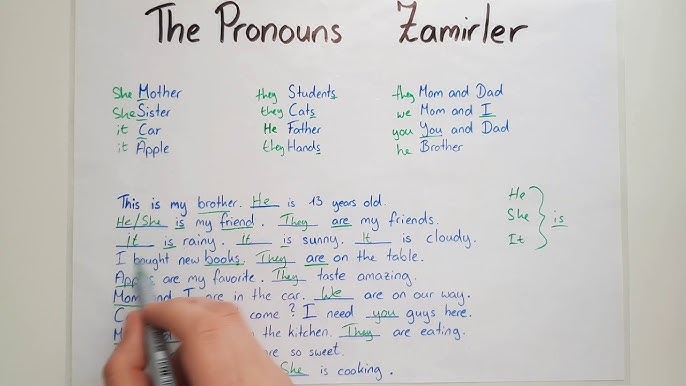 The Pronouns Zamirler
She Mother they Students they Mom and Dad
She Sister they Cats we Mom and I
it Car He Father you You and Dad
it Apple they Hands he Brother
This is my brother. He is 13 years old.
He/She is my friend. They are my friends.
It is rainy. It is sunny. It is cloudy.
I bought new books. They are on the table.
are my favorite. They taste amazing.
Mom and I are in the car. We are on our way.
come? I need you guys here.
the kitchen. They are eating.
are so sweet.
She is cooking.
He
She is
It